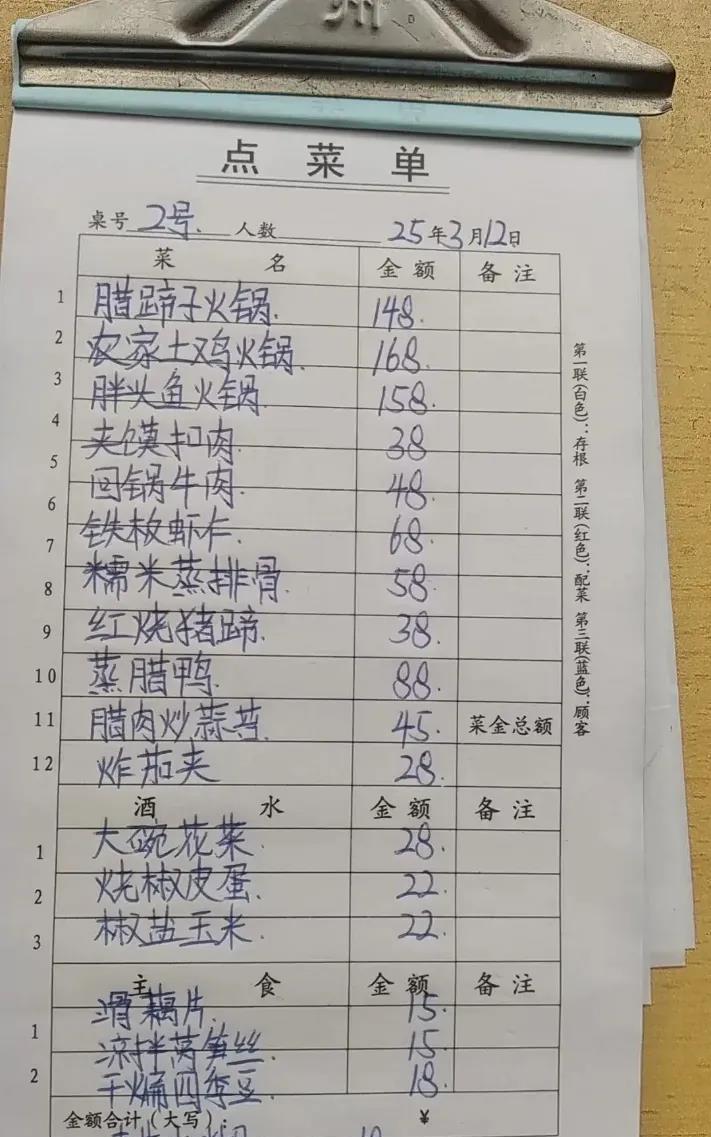 州
点菜单
桌号 2号. 人数 25年3月12日
菜名 金额 备注
1 腊蹄子火锅. 148.
2 农家土鸡火锅. 168.
3 胖头鱼火锅. 158.
4 夹馍扣肉. 38
5 回锅牛肉. 48.
6 铁板虾仁. 68.
7 糯米蒸排骨. 58.
8 红烧猪蹄. 38.
9 蒸腊鸭. 88.
10 腊肉炒蒜苔. 45. 菜金总额
11 炸茄夹 28.
12
酒水 金额 备注
1 大碗花菜. 28.
2 烧椒皮蛋. 22.
3 椒盐玉米. 22.
主食 金额 备注
滑藕片. 15.
1 凉拌莴笋丝. 15.
2 干煸四季豆. 18.
金额合计(大写): ¥
第一联(白色):存根 第二联(红色):配菜 第三联(蓝色):顾客